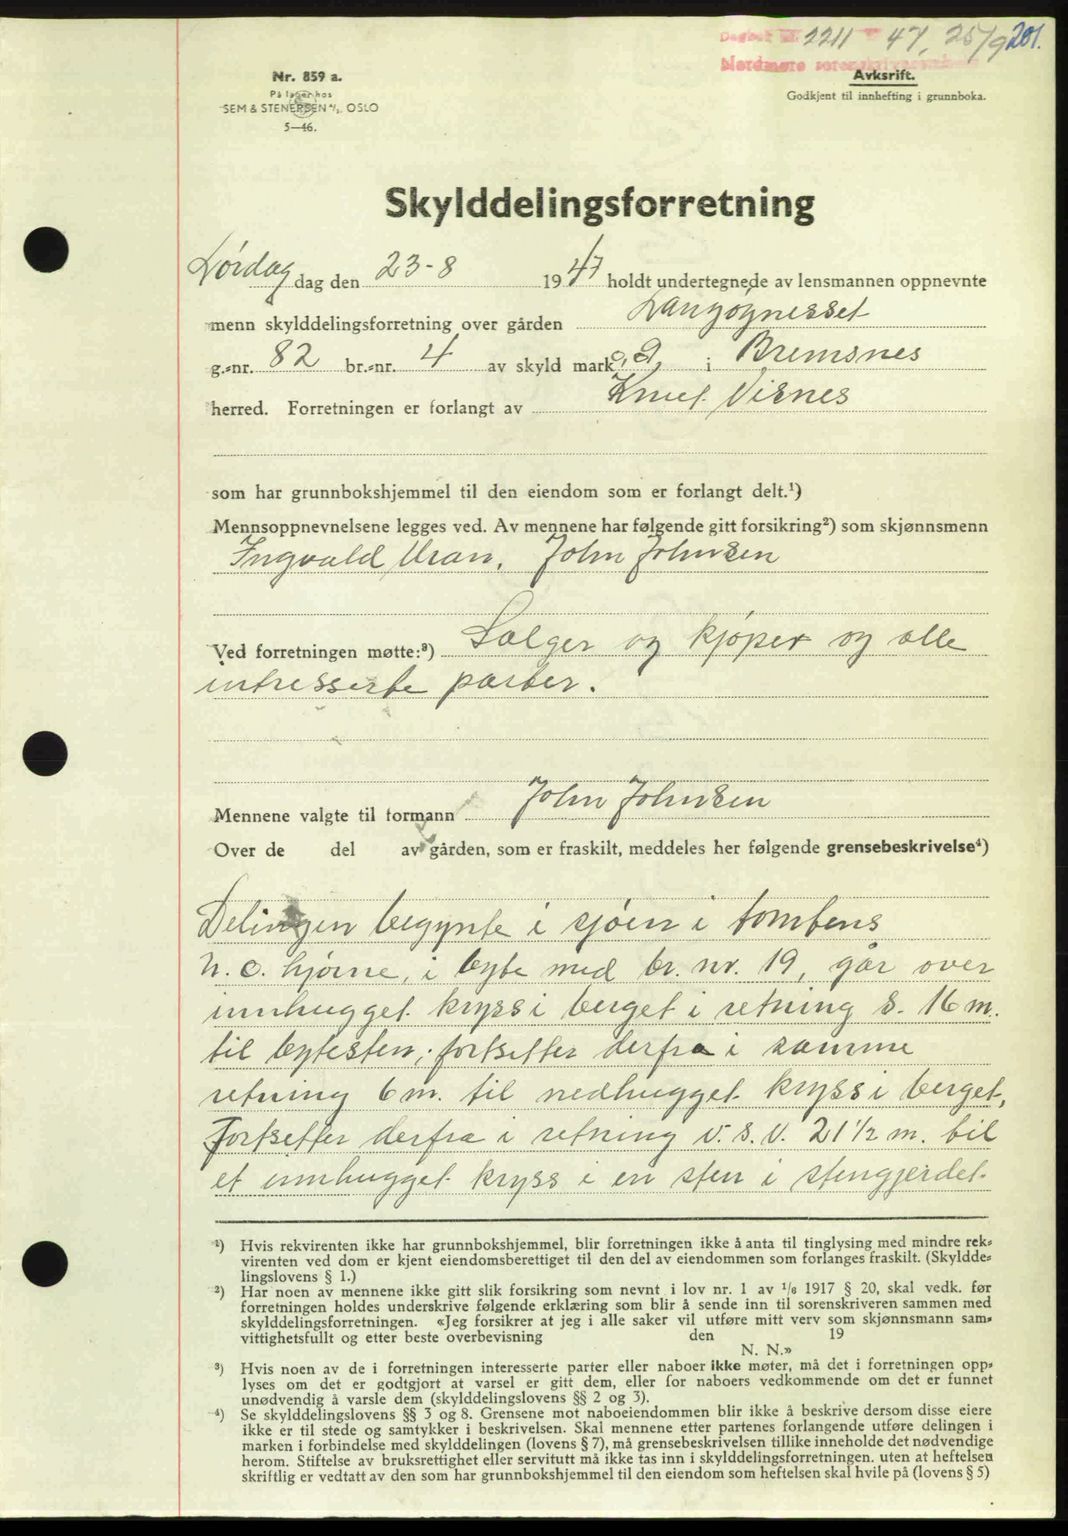 Dagbok nr. 2211 47, 25/9 201.
Nordmøre sorenskriverembete
Nr. 859 a.
På lager hos
SEM & STENERSEN A/S. OSLO
5—46.
Avksrift.
Godkjent til innhefting i grunnboka.
Skylddelingsforretning
Lördag dag den 23-8 1947 holdt undertegnede av lensmannen oppnevnte
menn skylddelingsforretning over gården Langögnesset
g.=nr. 82 br.=nr. 4 av skyld mark i Bremsnes
herred. Forretningen er forlangt av Knut Visnes
som har grunnbokshjemmel til den eiendom som er forlangt delt.¹)
Mennsoppnevnelsene legges ved. Av mennene har følgende gitt forsikring²) som skjønnsmenn
Ingvald Uran, John Johnsen
Ved forretningen møtte:³) Sælger og kjøper og alle
intresserte parter.
Mennene valgte til formann John Johnsen
Over de del av gården, som er fraskilt, meddeles her følgende grensebeskrivelse⁴)
Delingen begynte i sjöen i tomtens
n. o. hjörne, i byte med br. nr. 19, går over
innhugget kryss i berget i retning S. 16 m.
til bytesten, fortsetter derfra i samme
retning 6 m. til nedhugget kryss i berget,
Fortsetter derfra i retning v. s. v. 21 1/2 m. til
et innhugget kryss i en sten i stengjerdet.
¹) Hvis rekvirenten ikke har grunnbokshjemmel, blir forretningen ikke å anta til tinglysing med mindre rek=
virenten ved dom er kjent eiendomsberettiget til den del av eiendommen som forlanges fraskilt. (Skyldde=
lingslovens § 1.)
²) Har noen av mennene ikke gitt slik forsikring som nevnt i lov nr. 1 av ¹/₆ 1917 § 20, skal vedk. før
forretningen holdes underskrive følgende erklæring som blir å sende inn til sorenskriveren sammen med
skylddelingsforretningen. «Jeg forsikrer at jeg i alle saker vil utføre mitt verv som skjønnsmann sam=
vittighetsfullt og etter beste overbevisning den 19
N. N.»
³) Hvis noen av de i forretningen interesserte parter eller naboer ikke møter, må det i forretningen opp=
lyses om det er godtgjort at varsel er gitt dem, eller for naboers vedkommende om det er funnet
unødvendig å varsle dem (skylddelingslovens §§ 2 og 3).
⁴) Se skylddelingslovens §§ 3 og 8. Grensene mot naboeiendommen blir ikke å beskrive dersom disse eiere
ikke er til stede og samtykker i beskrivelsen. Skal mennene etter partenes forlangende utføre delingen i
marken i forbindelse med skylddelingen (lovens § 7), må grensebeskrivelsen tillike inneholde det nødvendige
herom. Stiftelse av bruksrettighet eller servitutt må ikke tas inn i skylddelingsforretningen. uten at heftelsen
skriftlig er vedtatt av den som har grunnbokshjemmel til den eiendom som heftelsen skal hvile på (lovens § 5)